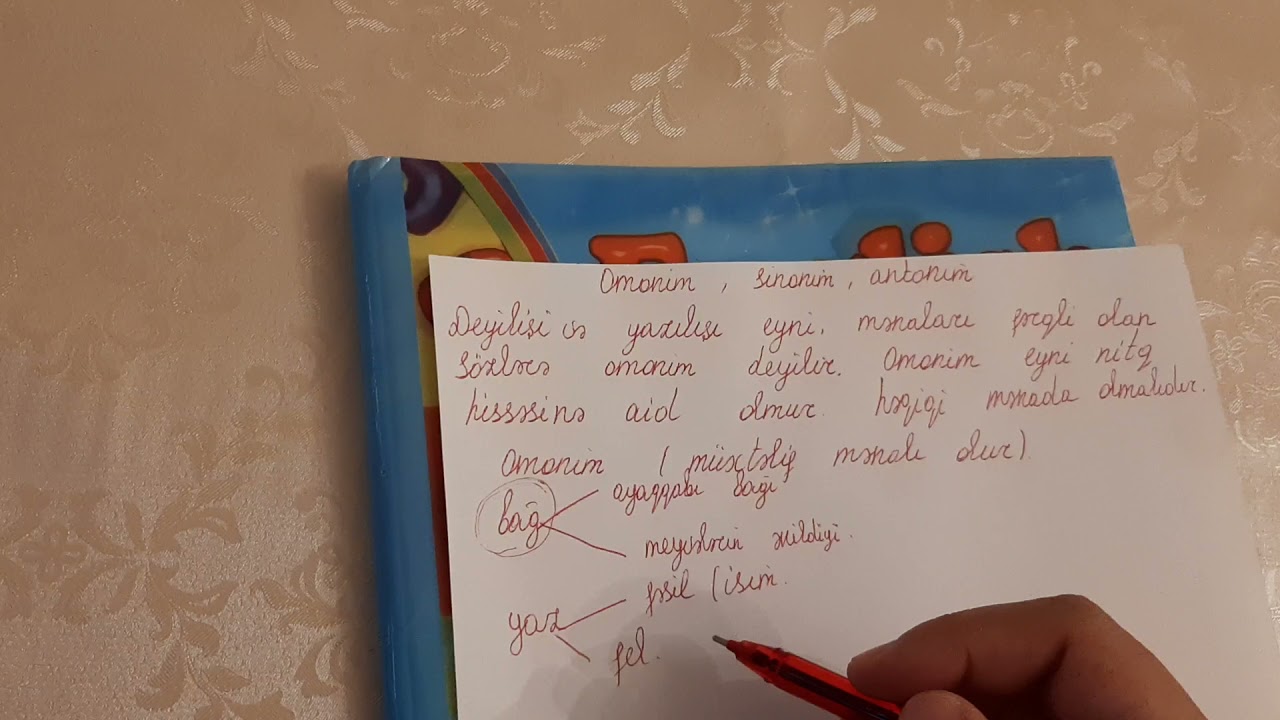 Omonim, sinonim, antonim
Deyilişi və yazılışı eyni, mənaları fərqli olan
sözlərə omonim deyilir. Omonim eyni nitq
hissəsinə aid olmur. həqiqi mənada olmalıdır.
Omonim (müxtəlif mənalı olur).
bağ
ayaqqabı bağı
meyvələrin əkildiyi.
yaz
fəsil (isim.
fel.